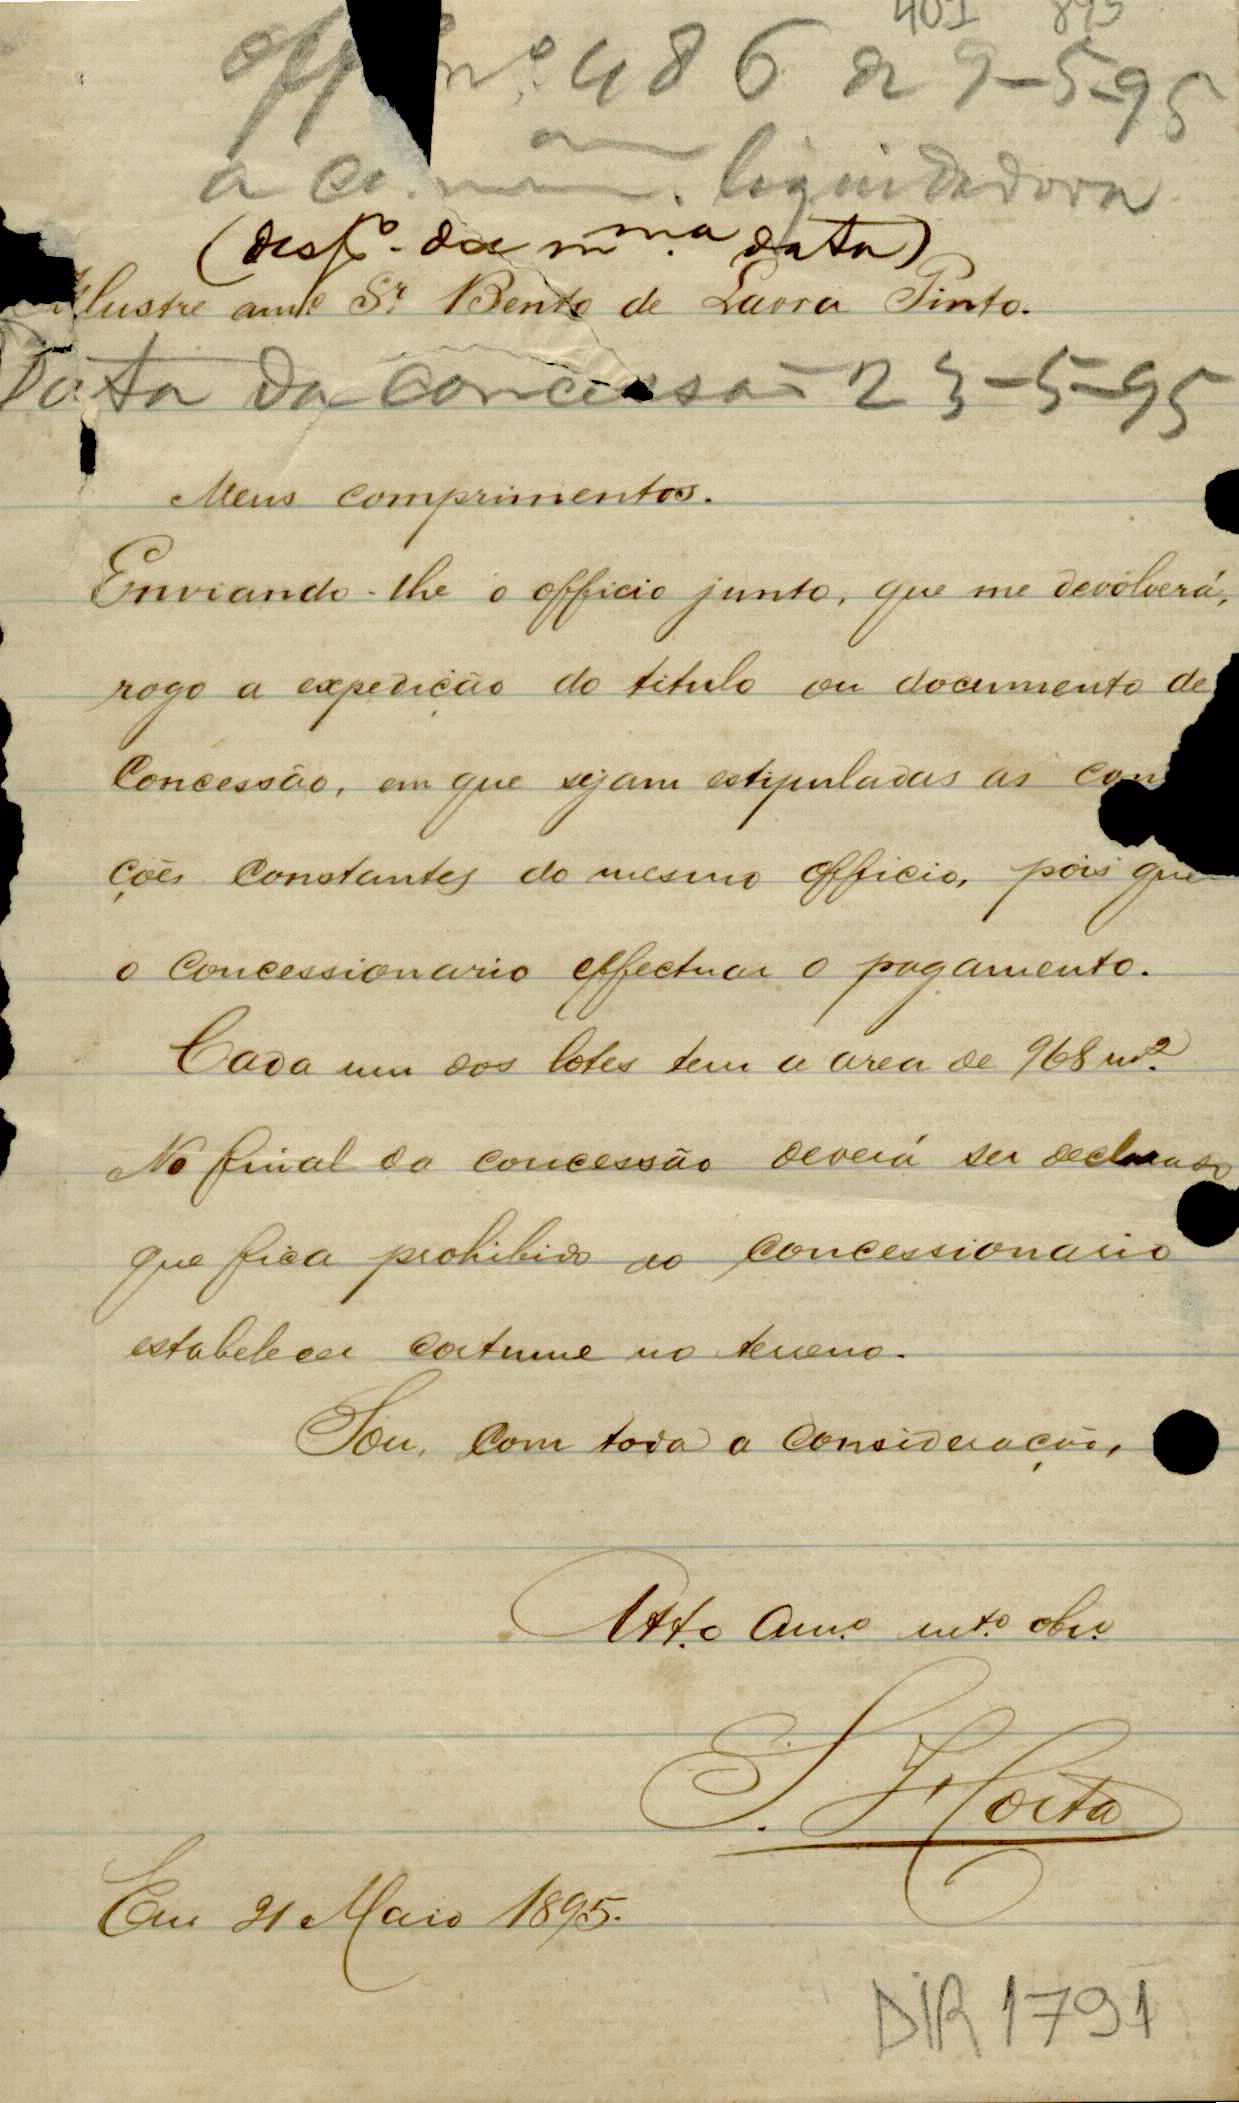 401 895
Off nº 486 de 9-5-95
a com. liquidadora
(desp.º da m.ma data)
Illustre am.º Sr. Bento de Lavra Pinto.
Data da concessão 23-5-95
Meus comprimentos.
Enviando-lhe o officio junto, que me devolverá,
rogo a expedição do titulo ou documento de
Concessão, em que sejam estipuladas as con
ções constantes do mesmo officio, pois que
o concessionario effectuar o pagamento.
Cada um dos lotes tem a area de 968 m².
No final da concessão deverá ser declarado
que fica prohibido ao concessionario
estabelecer cortume no terreno.
Sou, com toda a consideração,
Att.o Am.o mt.o obr.o
S. Horta
Em 21 Maio 1895.
DIR 1791